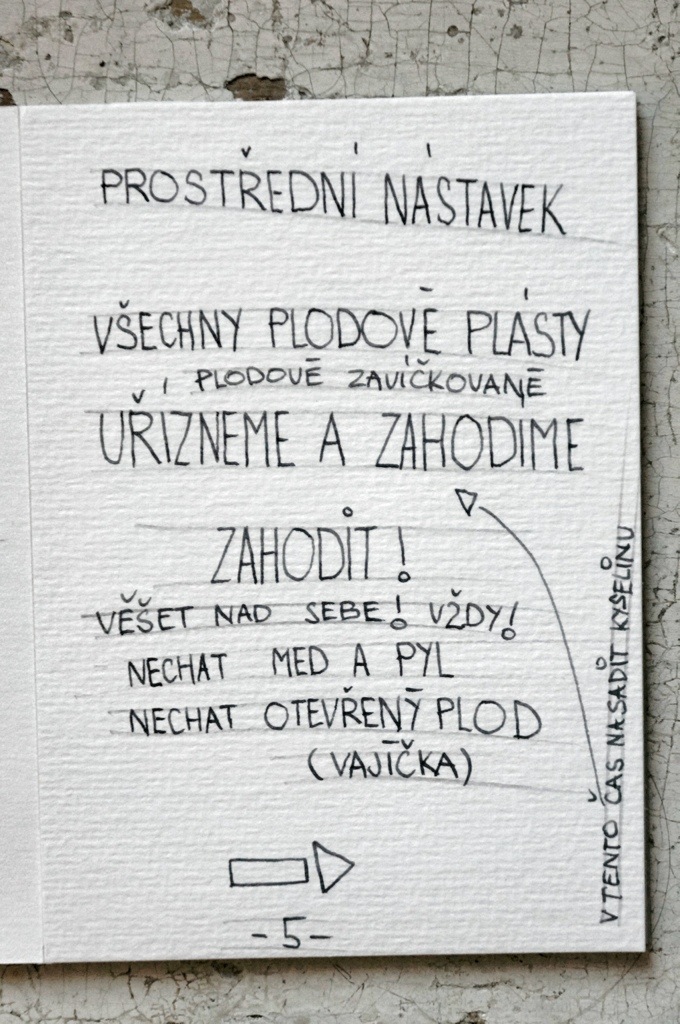 PROSTŘEDNÍ NÁSTAVEK
VŠECHNY PLODOVÉ PLÁSTY
I PLODOVÉ ZAVÍČKOVANÉ
UŘÍZNEME A ZAHODIME
ZAHODIT!
VĚŠET NAD SEBE! VŽDY!
NECHAT MED A PYL
NECHAT OTEVŘENÝ PLOD
(VAJÍČKA)
-5-
V TENTO ČAS NASADIT KYSELINU